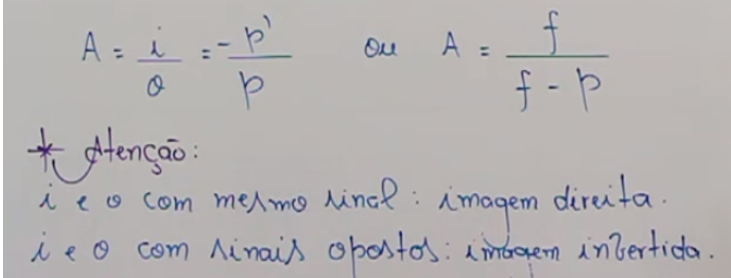 A = i/o = -p'/p ou A = f/(f - p)
* Atenção:
i e o com mesmo sinal: imagem direita.
i e o com sinais opostos: imagem invertida.